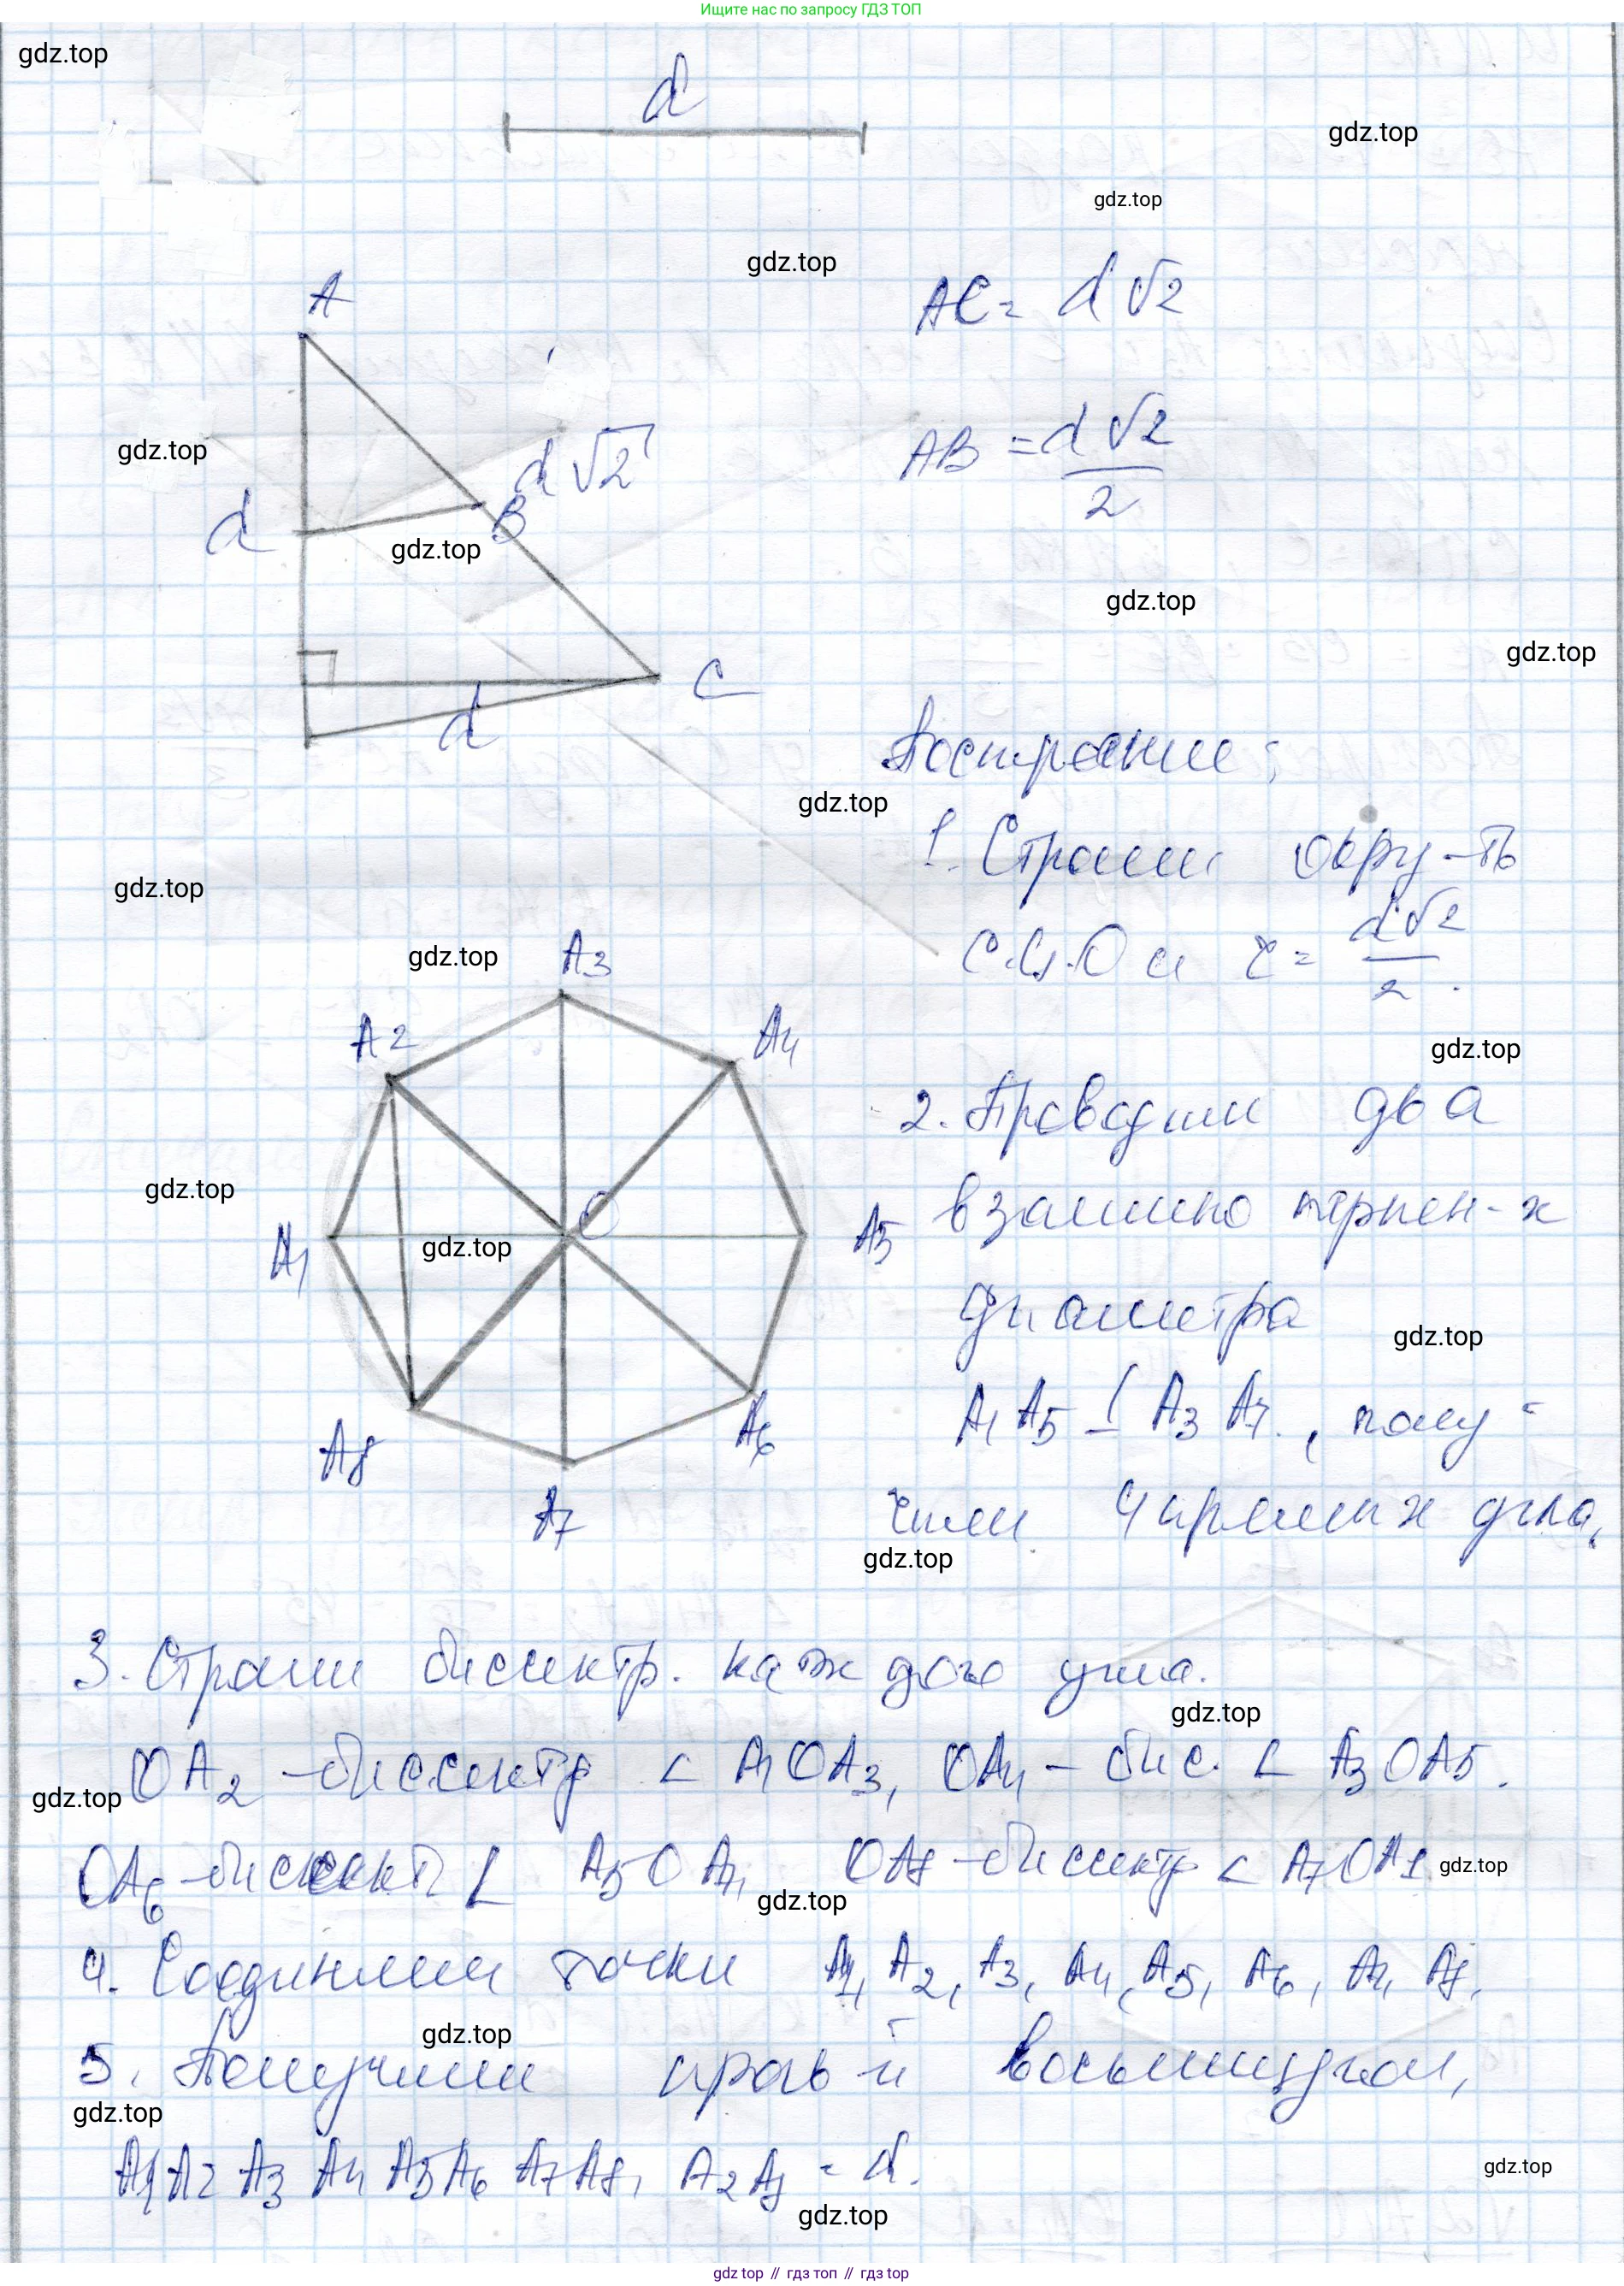 Ищите нас по запросу ГДЗ ТОП
gdz.top
d
gdz.top
gdz.top
gdz.top
A
AC = d √2
gdz.top
d √2
AB = d √2 / 2
d
B
gdz.top
gdz.top
gdz.top
C
d
Построение:
gdz.top
1. Строим окру-ть
gdz.top
с ц. O и r = d √2 / 2 .
gdz.top
A3
A2
A4
gdz.top
2. Проводим два
gdz.top
взаимно перпен-х
A1
gdz.top
O
A5
диаметра
gdz.top
A1 A5 ⊥ A3 A7, полу-
A8
A6
A7
чим 4 прямых угла,
gdz.top
3. Строим биссектр. каждого угла.
gdz.top
OA2 – биссектр ∠ A1OA3, OA4 – бис. ∠ A3OA5.
gdz.top
OA6 – биссект ∠ A5OA7, OA8 – биссектр ∠ A7OA1
gdz.top
gdz.top
4. Соединяем точки A1, A2, A3, A4, A5, A6, A7, A8.
gdz.top
5. Получим прав-й восьмиугол,
gdz.top
A1A2A3A4A5A6A7A8, A2A8 = d.
gdz.top
gdz.top
gdz top // гдз топ // гдз top